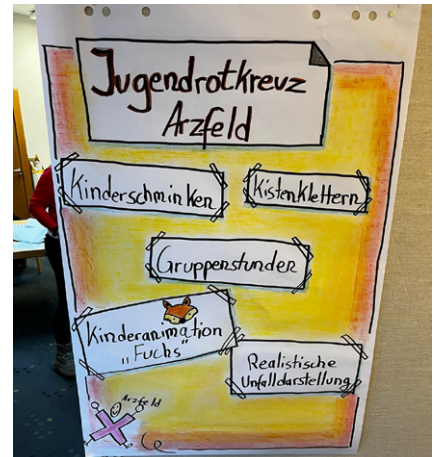 Jugendrotkreuz
Arzfeld
Kinderschminken
Kistenklettern
Gruppenstunden
Kinderanimation
„Fuchs"
Realistische
Unfalldarstellung
Arzfeld